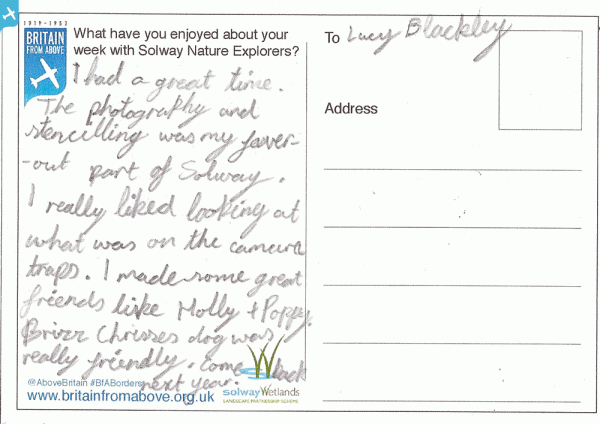 1919-1953
BRITAIN
FROM ABOVE
What have you enjoyed about your
week with Solway Nature Explorers?
I had a great time.
The photography and
stencilling was my faver-
-out part of Solway.
I really liked looking at
what was on the camera
traps. I made some great
friends like Molly + Poppy.
Brizz Chrisses dog was
really friendly. come back
next year.
@AboveBritain #BfABorders
www.britainfromabove.org.uk
solwayWetlands
LANDSCAPE PARTNERSHIP SCHEME
To Lucy Blackley
Address